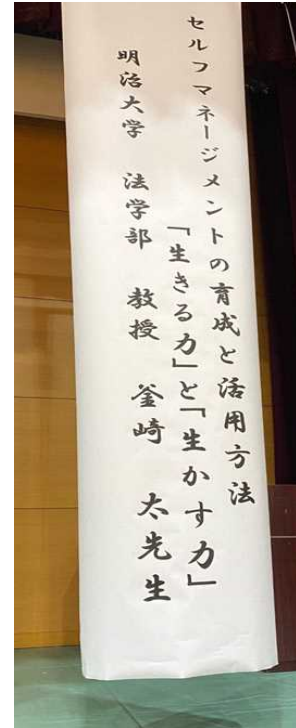 セルフマネージメントの育成と活用方法
「生きる力」と「生かす力」
明治大学 法学部 教授 釜崎 太先生